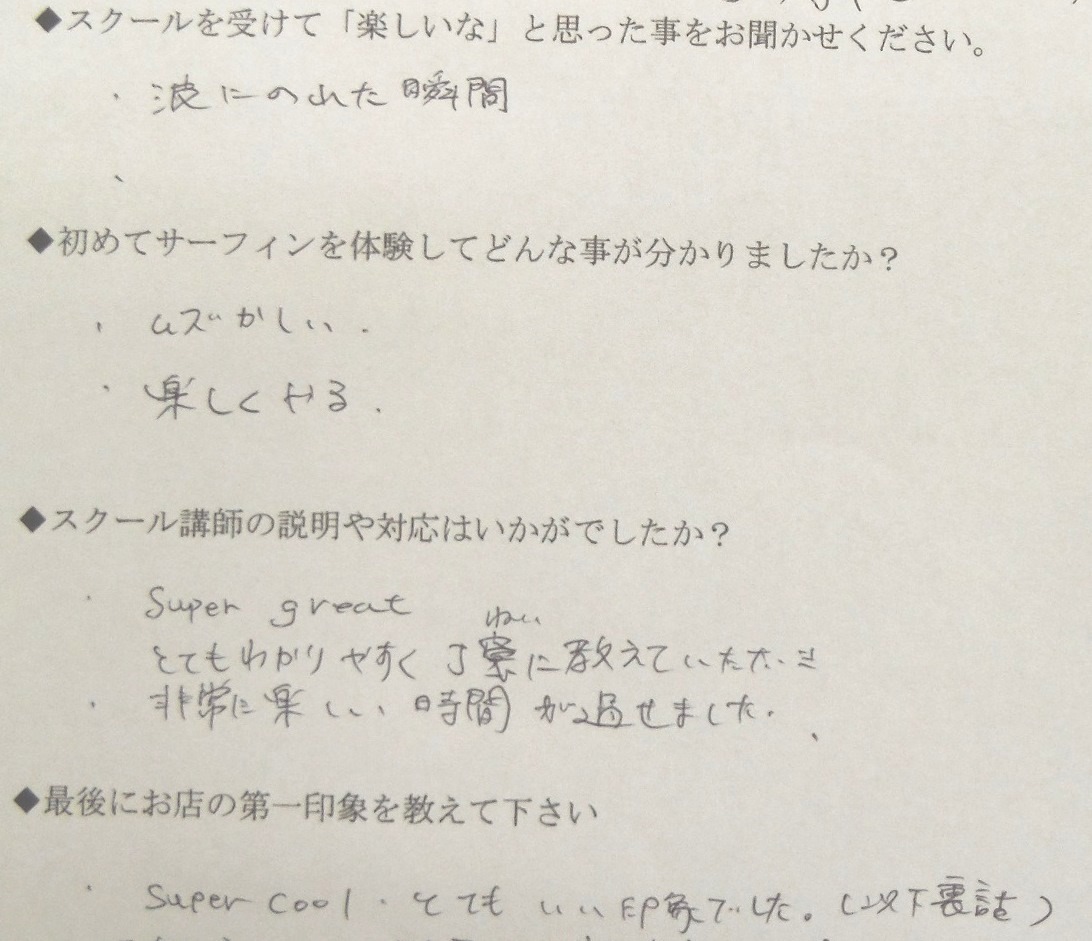 ◆スクールを受けて「楽しいな」と思った事をお聞かせください。
・波にのれた瞬間
、
◆初めてサーフィンを体験してどんな事が分かりましたか？
・ムズかしい.
・楽しくやる.
◆スクール講師の説明や対応はいかがでしたか？
・Super great
ねい
とてもわかりやすく丁寮に教えていただき
・非常に楽しい時間が過せました.
◆最後にお店の第一印象を教えて下さい
・Super cool・とてもいい印象でした。(以下裏誌)